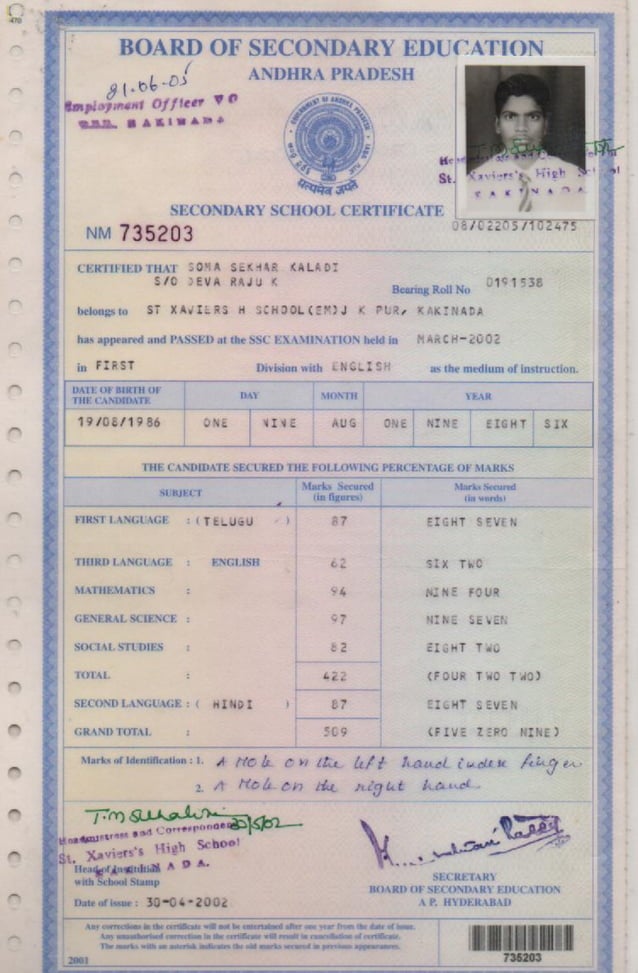 BOARD OF SECONDARY EDUCATION
ANDHRA PRADESH
21.06.05
Employment Officer
KAKINADA
GOVERNMENT OF ANDHRA PRADESH
सत्यमेव जयते
St. Xaviers's High School
KAKINADA
SECONDARY SCHOOL CERTIFICATE
08/02205/102475
NM 735203
CERTIFIED THAT SOMA SEKHAR KALADI
S/O DEVA RAJU K
Bearing Roll No 0191538
belongs to ST XAVIERS H SCHOOL(EM)J K PUR, KAKINADA
has appeared and PASSED at the SSC EXAMINATION held in MARCH-2002
in FIRST Division with ENGLISH as the medium of instruction.
DATE OF BIRTH OF THE CANDIDATE DAY MONTH YEAR
19/08/1986 ONE NINE AUG ONE NINE EIGHT SIX
THE CANDIDATE SECURED THE FOLLOWING PERCENTAGE OF MARKS
SUBJECT Marks Secured (in figures) Marks Secured (in words)
FIRST LANGUAGE : (TELUGU ) 87 EIGHT SEVEN
THIRD LANGUAGE : ENGLISH 62 SIX TWO
MATHEMATICS : 94 NINE FOUR
GENERAL SCIENCE : 97 NINE SEVEN
SOCIAL STUDIES : 82 EIGHT TWO
TOTAL : 422 (FOUR TWO TWO)
SECOND LANGUAGE : ( HINDI ) 87 EIGHT SEVEN
GRAND TOTAL : 509 (FIVE ZERO NINE)
Marks of Identification : 1. A Mole on the left hand index finger
2. A Mole on the right hand
30/5/02
Headmistress and Correspondent
St. Xaviers's High School
KAKINADA.
Head of Institution
with School Stamp
SECRETARY
BOARD OF SECONDARY EDUCATION
A P. HYDERABAD
Date of issue : 30-04-2002
Any corrections in the certificate will not be entertained after one year from the date of issue.
Any unauthorised correction in the certificate will result in cancellation of certificate.
The marks with an asterisk indicates the old marks secured in previous appearances.
2001
735203